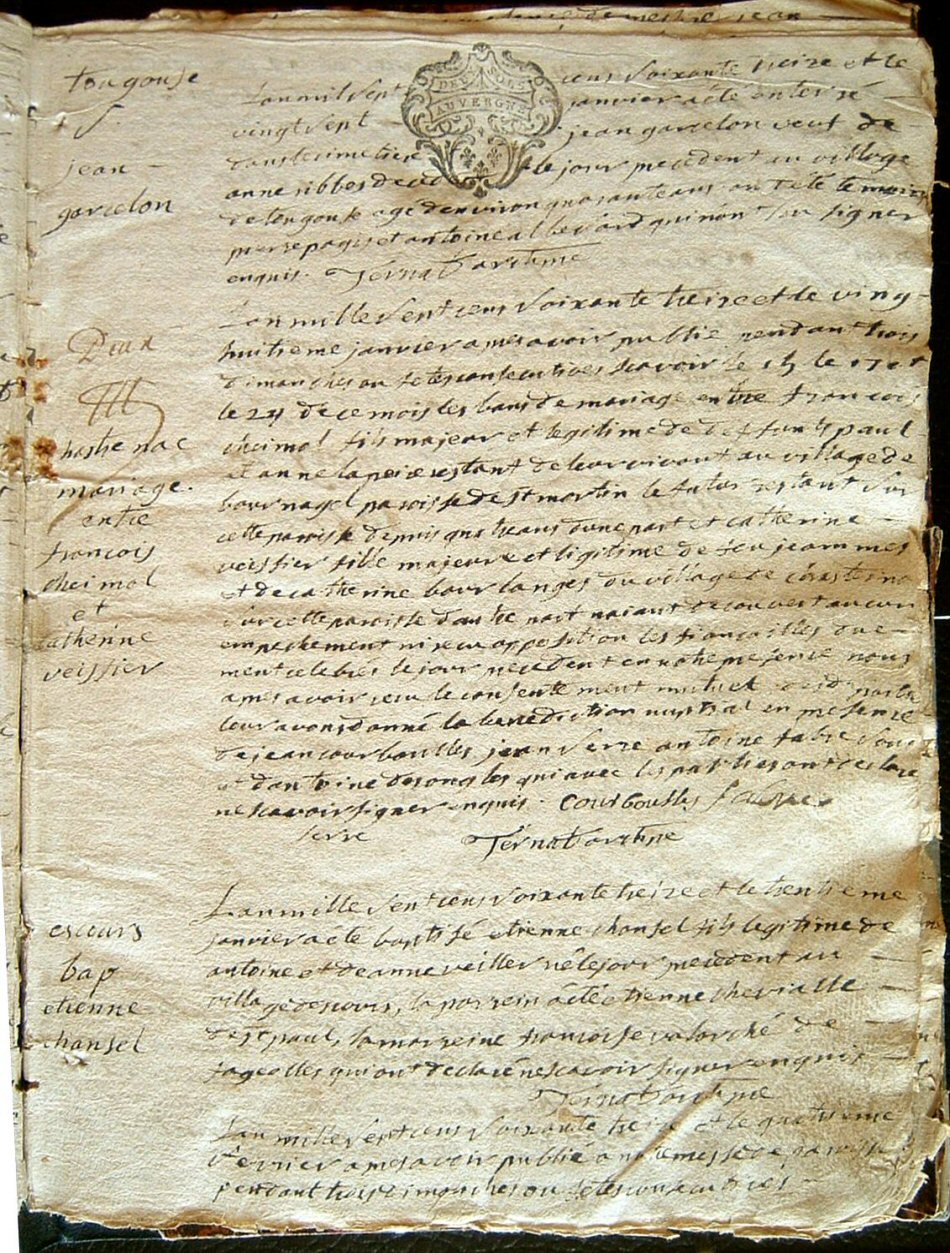 jean
tougouse
S
jean
garcelon
Lan mil sept cens soixante treize et le
vingt sept janvier a été enterré
dans le cimetiere jean garcelon veuf de
anne ribbes decedé le jour precedent au village
de tougouse agé denviron quarante ans on t été temoins
pierre pages et antoine alleuard qui nont seu signer
enquis.
DEUX SOLS
AUVERGNE
Lan mille sept cens soixante treize et le ving
huitieme janvier apres avoir publié pendant trois
dimanches ou fetes consecutives scavoir le 15 le 17 et
le 24 de ce mois les bans de mariage entre francois
cheimol fils majeur et legitime de deffunts paul
et anne restant de leur vivant au village de
bournagel paroisse de st martin le futur restant sur
cette paroisse depuis quatre ans dune part et catherine
veissier fille majeure et legitime de feu jean
et de catherine bourlanges du village de
sur cette paroisse dautre part naiant decouvert aucun
empechement ni reçu opposition les fiancailles due
ment celebrés le jour precedent en notre presence nous
apres avoir reçu le consentement mutuel des parties
leur avons donné la benediction nuptial en presence
de jean courboulles jean serre antoine fabre
et dantoine desongles qui avec les parties ont declaré
ne scavoir signer enquis. Courboulles fabre
serre
mariage
entre
francois
cheimol
et
catherine
veissier
Lan mille sept cens soixante treize et le trentieme
janvier a été baptisé etienne chansel fils legitime de
antoine et de anne veiller né le jour precedent au
village descours, le parrein a été etienne chevialle
de st paul, la marreine francoise valarché de
fageolles qui ont declaré ne scavoir signer enquis
escours
bap
etienne
chansel
Lan mille sept cens soixante treize et le quatrieme
fevrier apres avoir publié a notre messe de paroisse
pendant trois dimanches ou fetes consecutives